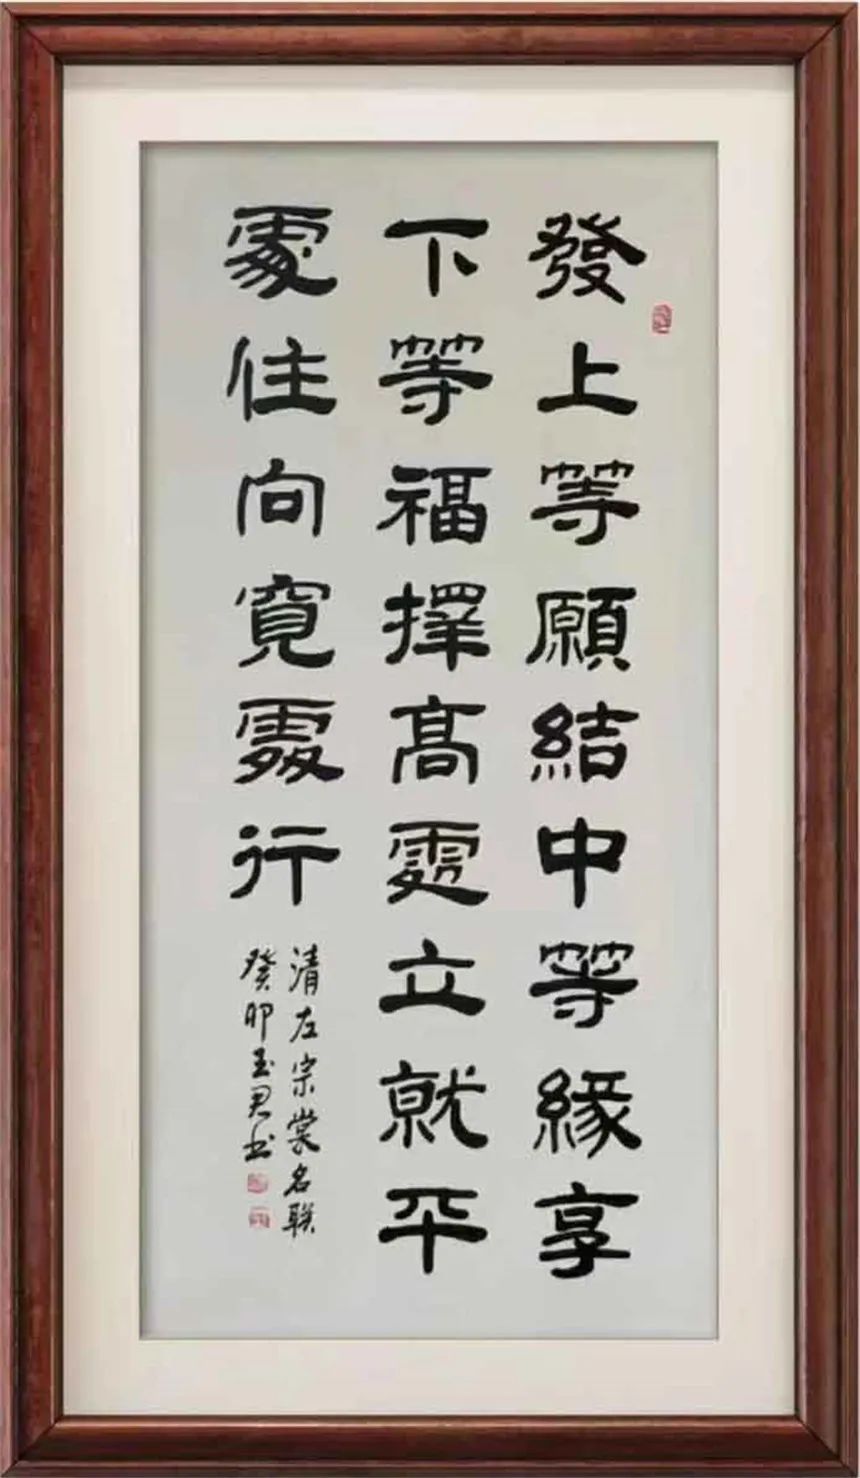 發上等願結中等緣享
下等福擇高處立就平
處住向寬處行
清左宗棠名联
癸卯玉君书